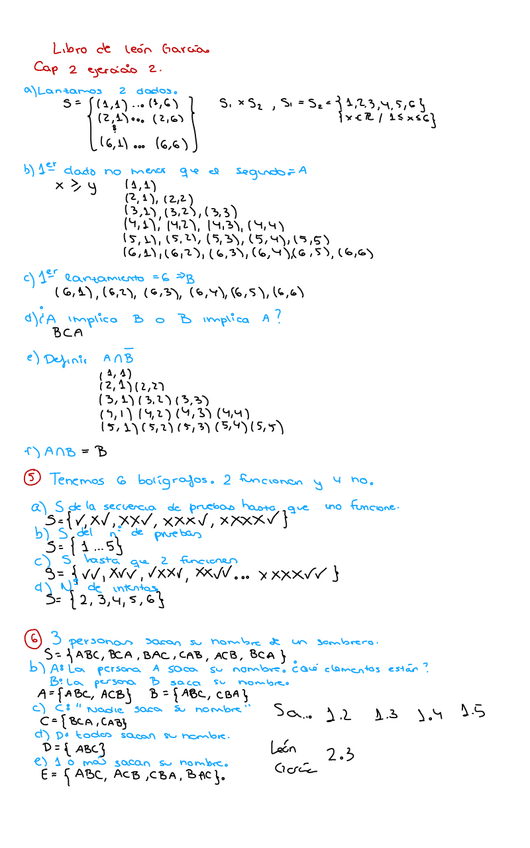 Libro de León García
Cap 2 ejercicio 2.
a) Lanzamos 2 dados.
S = { (1,1) ... (1,6)
(2,1) ... (2,6)
⋮
(6,1) ... (6,6) }
S₁ x S₂ , S₁ = S₂ = { 1,2,3,4,5,6 }
{ x ∈ ℤ / 1 ≤ x ≤ 6 }
b) 1er dado no menor que el segundo = A
x ⩾ y
(1,1)
(2,1), (2,2)
(3,1), (3,2), (3,3)
(4,1), (4,2), (4,3), (4,4)
(5,1), (5,2), (5,3), (5,4), (5,5)
(6,1), (6,2), (6,3), (6,4), (6,5), (6,6)
c) 1er lanzamiento = 6 ⇒ B
(6,1), (6,2), (6,3), (6,4), (6,5), (6,6)
d) ¿A implica B o B implica A?
B⊂A
e) Definir A∩B̅
(1,1)
(2,1) (2,2)
(3,1) (3,2) (3,3)
(4,1) (4,2) (4,3) (4,4)
(5,1) (5,2) (5,3) (5,4) (5,5)
f) A∩B = B
5 Tenemos 6 bolígrafos. 2 funcionan y 4 no.
a) S de la secuencia de pruebas hasta que uno funcione.
S = { ✓, X✓, XX✓, XXX✓, XXXX✓ }
b) S del nº de pruebas
S = { 1 ... 5 }
c) S hasta que 2 funcionen
S = { ✓✓, X✓✓, ✓X✓, XX✓✓ ... XXXX✓✓ }
d) Nº de intentos
S = { 2, 3, 4, 5, 6 }
6 3 personas sacan su nombre de un sombrero.
S = { ABC, BCA, BAC, CAB, ACB, BCA }
b) A: La persona A saca su nombre. ¿Qué elementos están?
B: La persona B saca su nombre.
A = { ABC, ACB } B = { ABC, CBA }
c) C: "Nadie saca su nombre"
C = { BCA, CAB }
d) D: todos sacan su nombre.
D = { ABC }
e) 1 o más sacan su nombre.
E = { ABC, ACB, CBA, BAC }.
Sa... 1.2 1.3 1.4 1.5
León
García 2.3